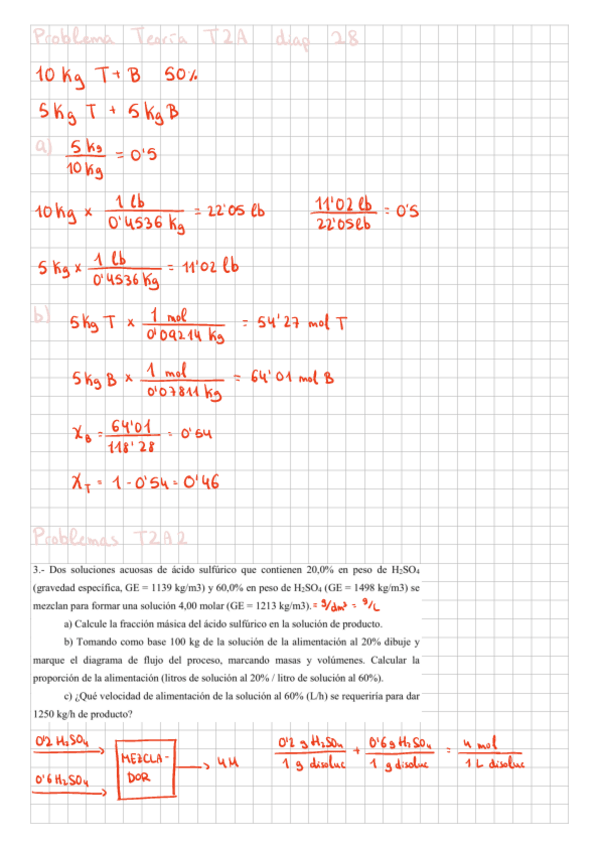 Problema Teoría T2A diap 28
10 Kg T + B 50%
5 Kg T + 5 Kg B
a) 5 kg / 10 Kg = 0'5
10 Kg × 1 lb / 0'4536 Kg = 22'05 lb 11'02 lb / 22'05 lb = 0'5
5 Kg × 1 lb / 0'4536 Kg = 11'02 lb
b) 5 Kg T × 1 mol / 0'09214 Kg = 54'27 mol T
5 Kg B × 1 mol / 0'07811 Kg = 64'01 mol B
X_B = 64'01 / 118'28 = 0'54
X_T = 1 - 0'54 = 0'46
Problemas T2A2
3.- Dos soluciones acuosas de ácido sulfúrico que contienen 20,0% en peso de H₂SO₄
(gravedad específica, GE = 1139 kg/m3) y 60,0% en peso de H₂SO₄ (GE = 1498 kg/m3) se
mezclan para formar una solución 4,00 molar (GE = 1213 kg/m3). = g/dm³ = g/L
a) Calcule la fracción másica del ácido sulfúrico en la solución de producto.
b) Tomando como base 100 kg de la solución de la alimentación al 20% dibuje y
marque el diagrama de flujo del proceso, marcando masas y volúmenes. Calcular la
proporción de la alimentación (litros de solución al 20% / litro de solución al 60%).
c) ¿Qué velocidad de alimentación de la solución al 60% (L/h) se requeriría para dar
1250 kg/h de producto?
0'2 H₂SO₄
0'6 H₂SO₄
MEZCLA-
DOR
4M
0'2 g H₂SO₄ / 1 g disoluc + 0'6 g H₂SO₄ / 1 g disoluc = 4 mol / 1 L disoluc